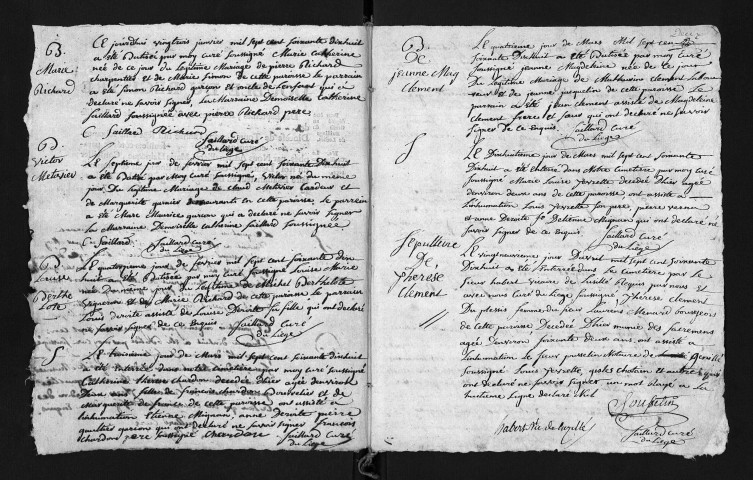 B.
Marie
Richard
Ce jourdhuy vingtrois janvier mil sept cent soixante dixhuit
a été Batisée par moy curé soussigné Marie Catherine
née de ce jour du legitime Mariage de pierre Richard
charpentier et de Marie Simon de cette paroisse le parrain
a été Simon Richard garçon et oncle de lenfant qui a
declaré ne savoir signer, la Marraine Demoiselle Catherine
Saillard soussignée avec pierre Richard pere
C. Saillard Richard
Saillard curé
du liege
B.
Victor
Metivier
Le septieme jour de fevrier mil sept cent soixante dixhuit
a été Batisé par moy curé soussigné, Victor né du même
jour Du legitime Mariage de Claud Metivier Cardeur et
de Marguerite demeurant en cette paroisse, le parrein
a été Marc Maurice garçon qui a declaré ne savoir signer
la Marraine Demoiselle Catherine Saillard soussignée
C. Saillard Saillard curé
du Liege
B.
Louise
Berthe
lote
Le quatorzieme jour de fevrier mil sept cent soixante dix
huit a été Batisée par moy curé soussigné Louise Marie
née du legitime de Michel Berthelotte
Vigneron et de Marie Richard de cette paroisse le parrain
Louis droite assisté de Louise Droite sa fille qui ont declaré
ne savoir signer de ce enquis Saillard curé
du Liege
S
Le troisieme jour de Mars mil sept cent soixante dixhuit
a été enterée dans notre cimetiere par moy curé soussigné
Catherine therese chardon decedée dhier agée denviron
deux ans fille de françois chardon et de
Marguerite de cette paroisse ont assisté a
linhumation Etienne Mignan, anne Deroite pierre
gaultier garçons qui ont declaré ne savoir signer françois
chardon pere soussigné chardon Saillard curé
du Liege
B
De
jeanne Mag
Clement
Le quatrieme jour de Mars Mil sept cent
soixante Dixhuit a été Batisée par moy curé
soussigné jeanne Magdeleine née de ce jour
du legitime Mariage de Mathurin Clement Labou
reur et de jeanne jusquelin de cette paroisse Le
parrain a été jean Clement assisté de Magdeleine
Clement freres et sœur qui ont declaré ne savoir
signer de ce enquis. Saillard curé
du liege
S
Le Dixhuitieme jour de Mars mil sept cent soixante
Dixhuit a été enterée dans Notre cimetiere par moy curé
soussigné Marie Louise yvrette decedée Dhier agée
denviron deux ans de cette paroisse ont assisté a
Linhumation Louis yvrette son pere, pierre
et anne Deroite Etienne Mignan qui ont declaré ne
savoir signer de ce enquis Saillard curé
du Liege
Sepulture
de
therese
Clement
Le vingtneuvieme jour Davril mil sept cent soixante
Dixhuit a été Enterrée dans le cimetiere par le
sieur habert vicaire de Luzillé Requis par nous et
avec nous curé du Liege soussigné, therese Clement
Du plessis femme du sieur Laurent Menard bourgeois
de cette paroisse Decedée Dhier munie des sacremens
agée denviron soixante deux ans, ont assisté a
linhumation Le sieur Notaire
soussigné Louis yvrette, chotin et autre qui
ont declaré ne savoir signer un mot rayé a la
huitieme Ligne declaré Nul
habert vic de luzillé
Saillard curé
du Liege